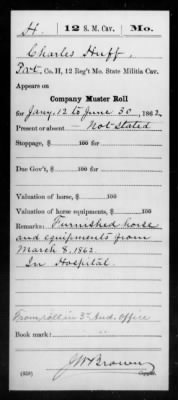 H. 12 S. M. Cav. Mo.
Charles Huff,
Pvt., Co. H, 12 Reg't Mo. State Militia Cav.
Appears on
Company Muster Roll
for Jany. 12 to June 30, 1862.
Present or absent— Not Stated
Stoppage, $ 100
Due Gov't, $ 100
Valuation of horse, $ 100
Valuation of horse equipments, $ 100
Remarks: Furnished horse
and equipments from
March 8, 1862
In Hospital.
From roll in 3d Aud. Office
Book mark:
J W Brown
(859) Copyist.